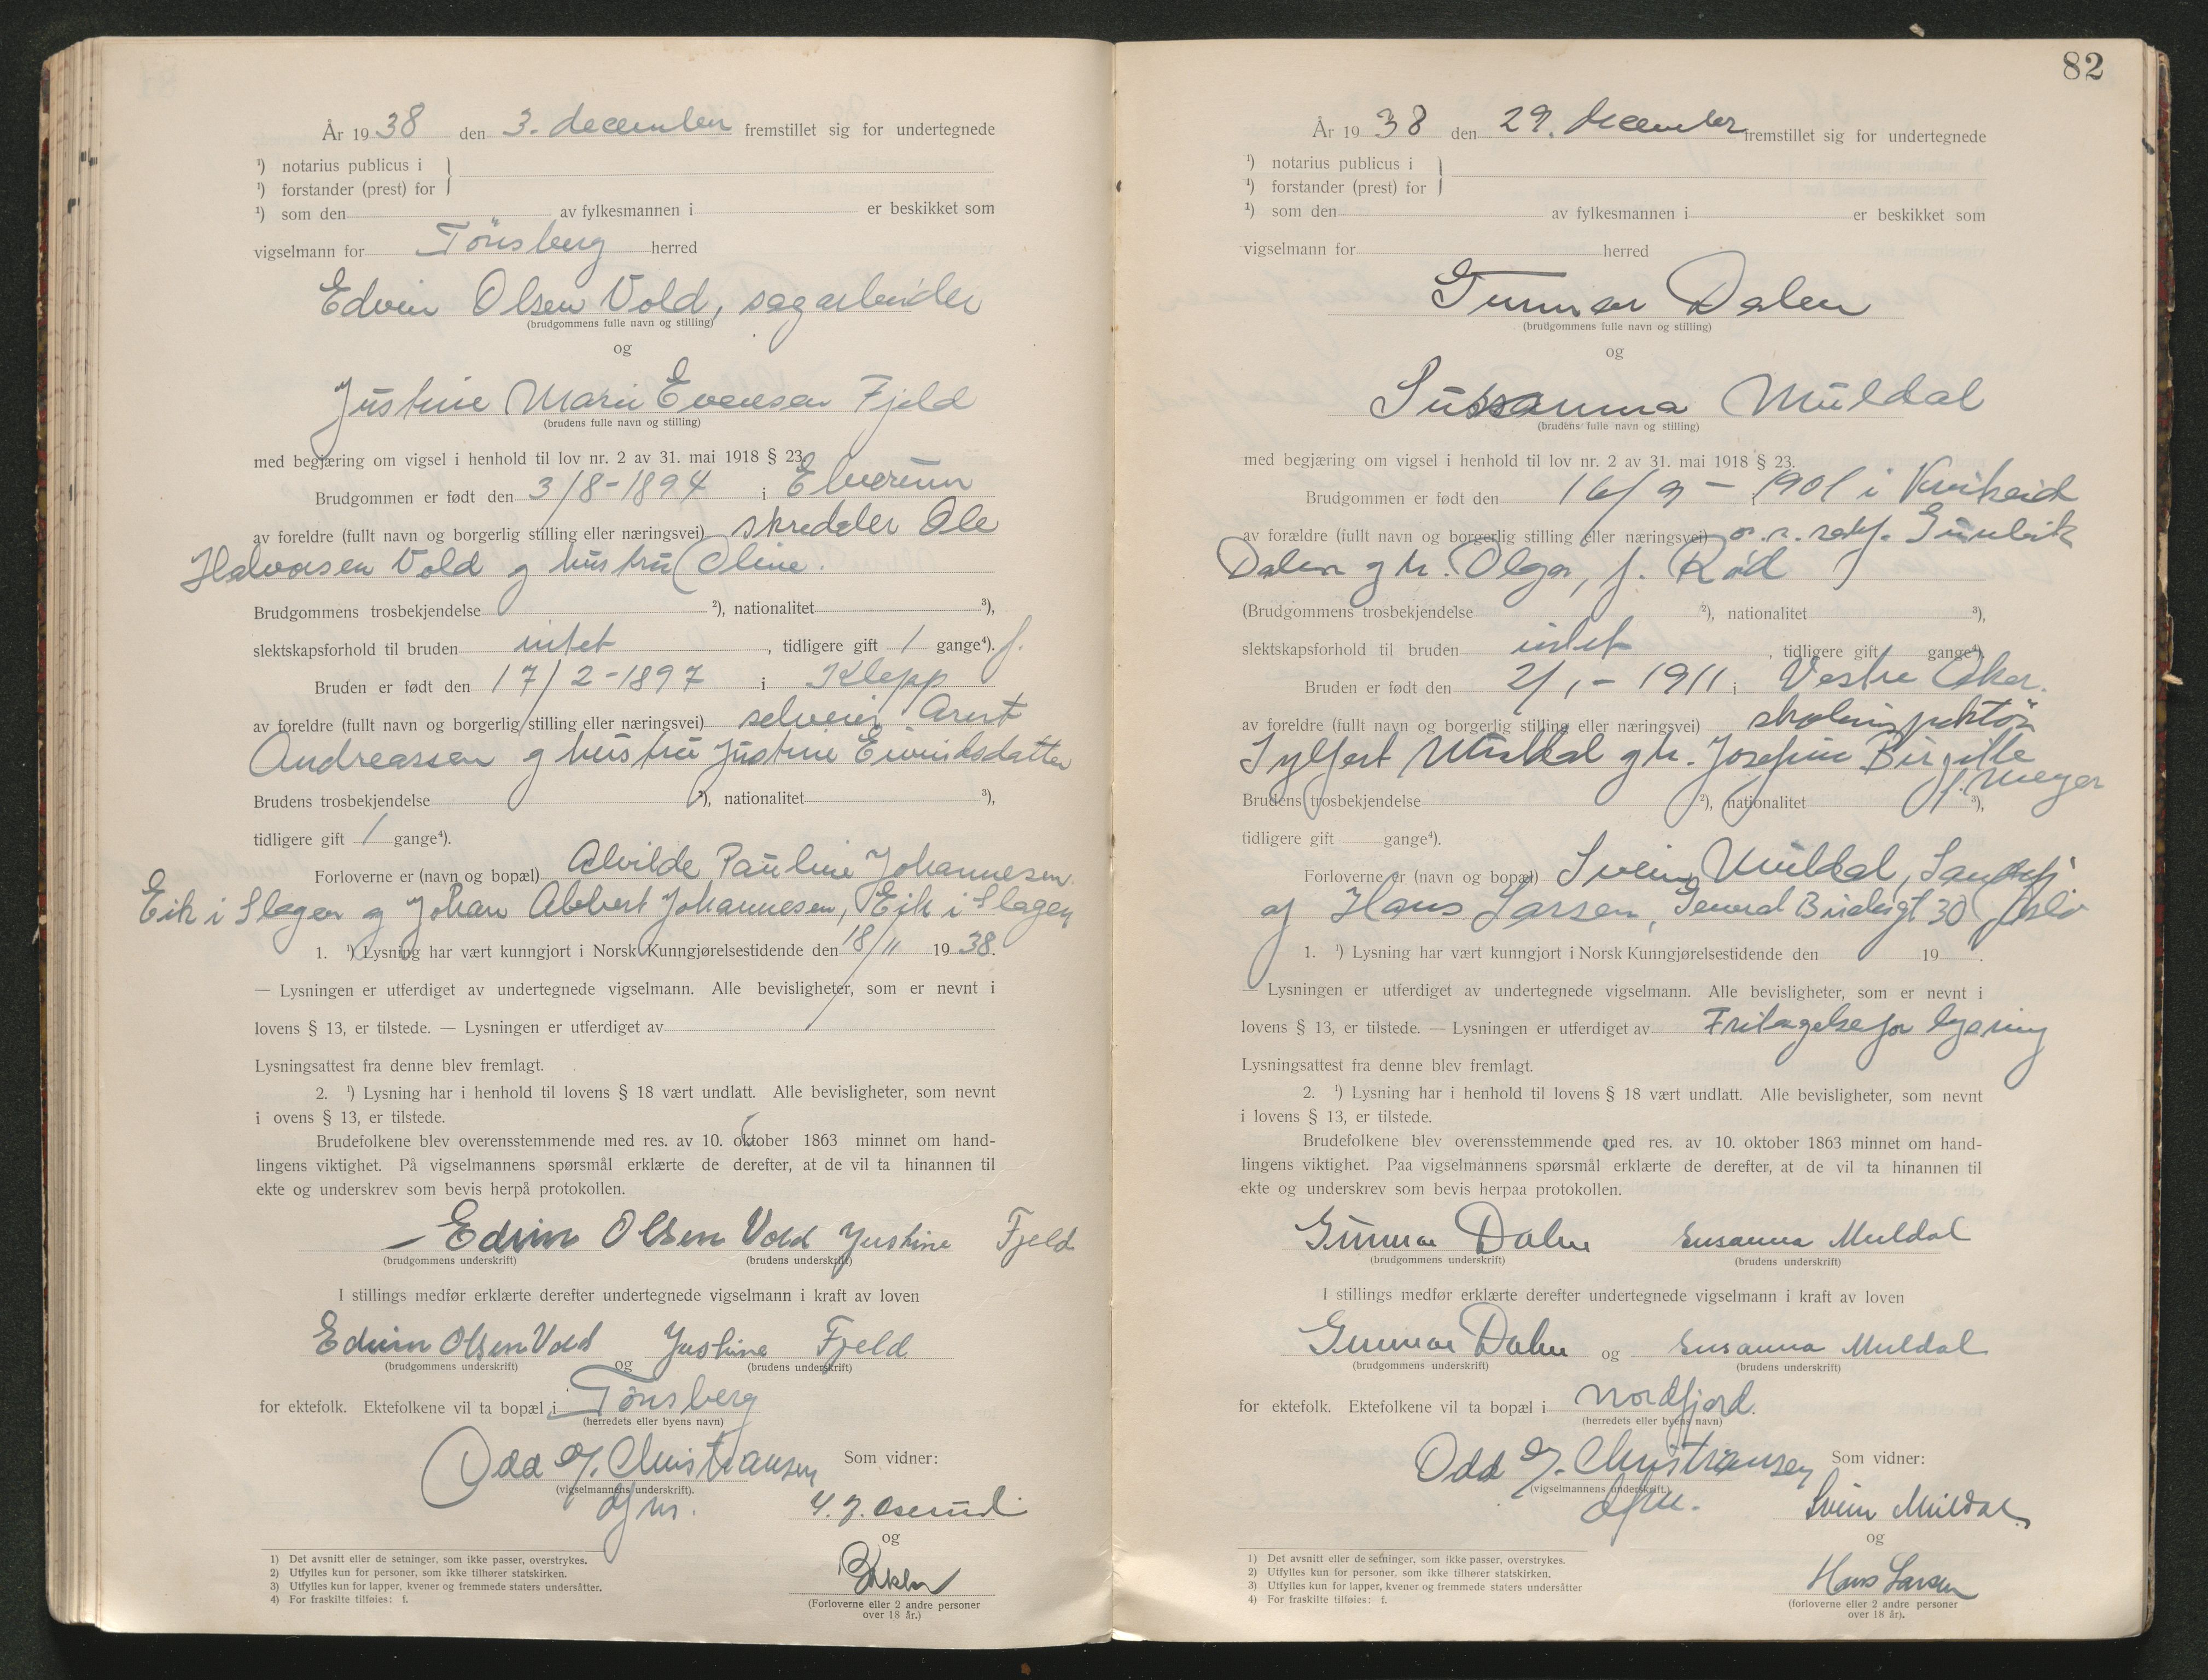 År 1938 den 3. december fremstillet sig for undertegnede
¹) notarius publicus i
¹) forstander (prest) for
¹) som den av fylkesmannen i er beskikket som
vigselmann for Tönsberg herred
Edvin Olsen Vold, sagarbeider
(brudgommens fulle navn og stilling)
og
Justine Marie Evensen Fjeld
(brudens fulle navn og stilling)
med begjæring om vigsel i henhold til lov nr. 2 av 31. mai 1918 § 23.
Brudgommen er født den 3/8-1894 i Elverum
av foreldre (fullt navn og borgerlig stilling eller næringsvei) skredder Ole
Halvorsen Vold og hustru Oline.
Brudgommens trosbekjendelse ²), nationalitet ³),
slektskapsforhold til bruden intet, tidligere gift 1 gange⁴). f.
Bruden er født den 17/2-1897 i Klepp
av foreldre (fullt navn og borgerlig stilling eller næringsvei) selveier Arnt
Andreassen og hustru Justine Eivindsdatter
Brudens trosbekjendelse ²), nationalitet ³),
tidligere gift 1 gange⁴).
Forloverne er (navn og bopæl) Alvilde Pauline Johannesen
Eik i Slagen og Johan Albert Johannesen, Eik i Slagen
1. ¹) Lysning har vært kunngjort i Norsk Kunngjørelsestidende den 18/11 1938.
— Lysningen er utferdiget av undertegnede vigselmann. Alle bevisligheter, som er nevnt i
lovens § 13, er tilstede. — Lysningen er utferdiget av
Lysningsattest fra denne blev fremlagt.
2. ¹) Lysning har i henhold til lovens § 18 vært undlatt. Alle bevisligheter, som nevnt
i ovens § 13, er tilstede.
Brudefolkene blev overensstemmende med res. av 10. oktober 1863 minnet om hand-
lingens viktighet. På vigselmannens spørsmål erklærte de derefter, at de vil ta hinannen til
ekte og underskrev som bevis herpå protokollen.
Edvin Olsen Vold Justine Fjeld
(brudgommens underskrift) (brudens underskrift)
I stillings medfør erklærte derefter undertegnede vigselmann i kraft av loven
Edvin Olsen Vold og Justine Fjeld
(brudgommens underskrift) (brudens underskrift)
for ektefolk. Ektefolkene vil ta bopæl i Tönsberg
(herredets eller byens navn)
Odd J. Christiansen Som vidner:
(vigselmannens underskrift).
dfm.
og
(Forloverne eller 2 andre personer
over 18 år.)
1) Det avsnitt eller de setninger, som ikke passer, overstrykes.
2) Utfylles kun for personer, som ikke tilhører statskirken.
3) Utfylles kun for lapper, kvener og fremmede staters undersåtter.
4) For fraskilte tilføies: f.
82
År 1938 den 29. december fremstillet sig for undertegnede
¹) notarius publicus i
¹) forstander (prest) for
¹) som den av fylkesmannen i er beskikket som
vigselmann for herred
Gunnar Dalen
(brudgommens fulle navn og stilling)
og
Susanna Müldal
(brudens fulle navn og stilling)
med begjæring om vigsel i henhold til lov nr. 2 av 31. mai 1918 § 23.
Brudgommen er født den 16/9-1901 i Kviteseid
av forældre (fullt navn og borgerlig stilling eller næringsvei) o.r. sakf. Gunleik
Dalen og h. Olga, f. Rød
(Brudgommens trosbekjendelse ²), nationalitet ³),
slektskapsforhold til bruden intet, tidligere gift gange⁴).
Bruden er født den 2/1-1911 i Vestre Aker.
av foreldre (fullt navn og borgerlig stilling eller næringsvei) skoleinspektör
Sylfest Muldal og h. Josefine Birgitte
f. Meyer
Brudens trosbekjendelse ²), nationalitet ³),
tidligere gift gange⁴).
Forloverne er (navn og bopæl) Svein Müldal, Sandefj
og Hans Larsen, General Birchsgt 30 Oslo
1. ¹) Lysning har vært kunngjort i Norsk Kunngjørelsestidende den 19 .
— Lysningen er utferdiget av undertegnede vigselmann. Alle bevisligheter, som er nevnt i
lovens § 13, er tilstede. — Lysningen er utferdiget av Fritagelse for lysning
Lysningsattest fra denne blev fremlagt.
2. ¹) Lysning har i henhold til lovens § 18 vært undlatt. Alle bevisligheter, som nevnt
i lovens § 13, er tilstede.
Brudefolkene blev overensstemmende med res. av 10. oktober 1863 minnet om hand-
lingens viktighet. Paa vigselmannens spørsmål erklærte de derefter, at de vil ta hinannen til
ekte og underskrev som bevis herpaa protokollen.
Gunnar Dalen Susanna Muldal
(brudgommens underskrift) (brudens underskrift)
I stillings medfør erklærte derefter undertegnede vigselmann i kraft av loven
Gunnar Dalen og Susanna Muldal
(brudgommens underskrift) (brudens underskrift)
for ektefolk. Ektefolkene vil ta bopæl i Nordfjord.
(herredets eller byens navn)
Odd J. Christiansen Som vidner:
(vigselmannens underskrift.)
dfm.
Svein Müldal
og
Hans Larsen
(forloverne eller 2 andre personer
over 18 år).
1) Det avsnitt eller de setninger, som ikke passer, overstrykes.
2) Utfylles kun for personer, som ikke tilhører statskirken.
3) Utfylles kun for lapper, kvener og fremmede staters undersåtter
4) For fraskilte tilføies: f.